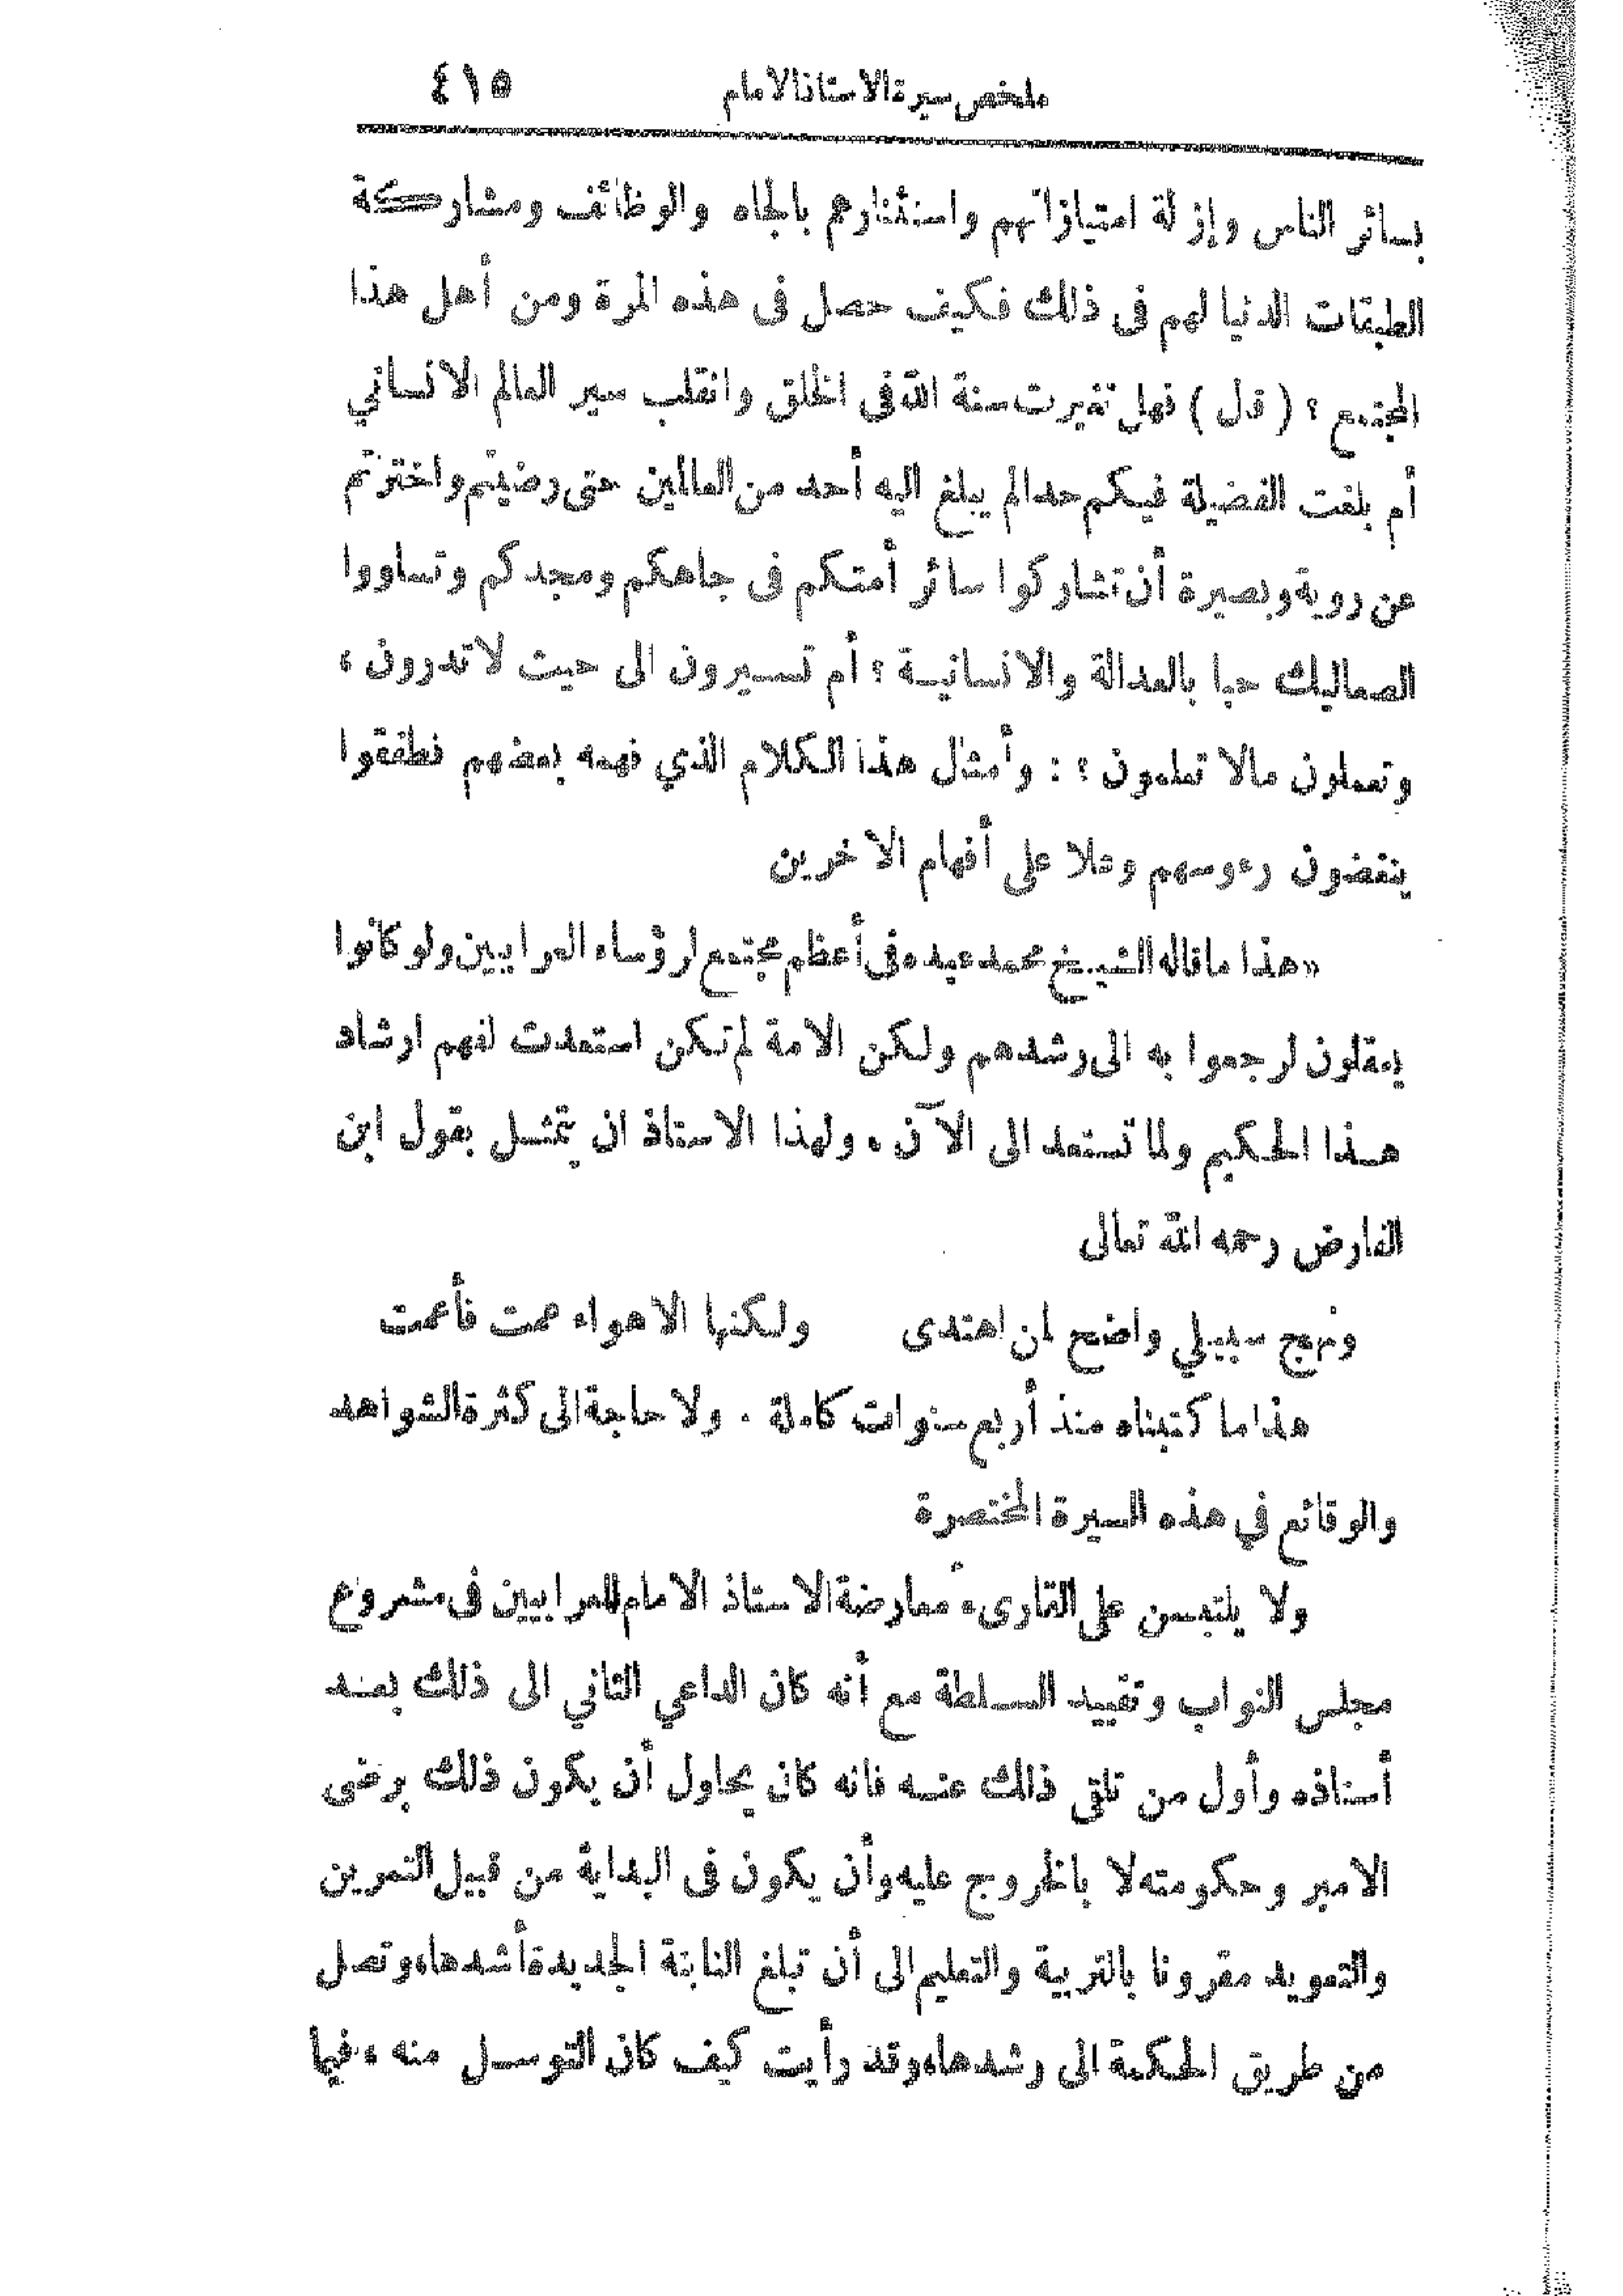 ملخص سيرة الاستاذ الامام ٤١٥
بسائر الناس وإزلة امتيازاتهم واستئثارهم بالجاه والوظائف ومشاركة
الطبقات الدنيا لهم فى ذلك فكيف حصل فى هذه المرة ومن أهل هذا
المجتمع ؟ ( قال ) فهل تغيرت سنة الله فى الخلق وانقلب سير العالم الانساني
أم بلغت الفضيلة فيكم حدا لم يبلغ اليه أحد من العالمين حتى رضيتم واخترتم
عن روية وبصيرة أن تشاركوا سائر أمتكم فى جاهكم ومجدكم وتساووا
الصعاليك حبا بالعدالة والانسانية ؟ أم تسيرون الى حيث لا تدرون ،
وتعملون مالا تعلمون ؟ : وأمثال هذا الكلام الذي فهمه بعضهم فطفقوا
ينغضون رءوسهم وعلا على أفهام الآخرين
«هذا ما قاله الشيخ محمد عبده فى أعظم مجتمع لرؤساء العرابيين ولو كانوا
يعقلون لرجعوا به الى رشدهم ولكن الامة لم تكن استعدت لفهم ارشاد
هذا الحكيم ولما تستعد الى الآن . ولهذا الاستاذ ان يتمثل بقول ابن
الفارض رحمه الله تعالى
ونهج سبيلي واضح لمن اهتدى ولكنها الاهواء عمت فأعمت
هذا ما كتبناه منذ أربع سنوات كاملة . ولا حاجة الى كثرة الشواهد
والوقائع في هذه السيرة المختصرة
ولا يلتبسن على القارىء معارضة الاستاذ الامام للعرابيين فى مشروع
مجلس النواب وتقييد السلطة مع أنه كان الداعي الثاني الى ذلك بعد
أستاذه وأول من تلقى ذلك عنه فانه كان يحاول أن يكون ذلك برضى
الامير وحكومته لا بالخروج عليه وأن يكون فى البداية من قبيل التمرين
والتعويد مقرونا بالتربية والتعليم الى أن تبلغ النابتة الجديدة أشدها، وتصل
من طريق الحكمة الى رشدها، وقد رأيت كيف كان التوسل منه ، فيما